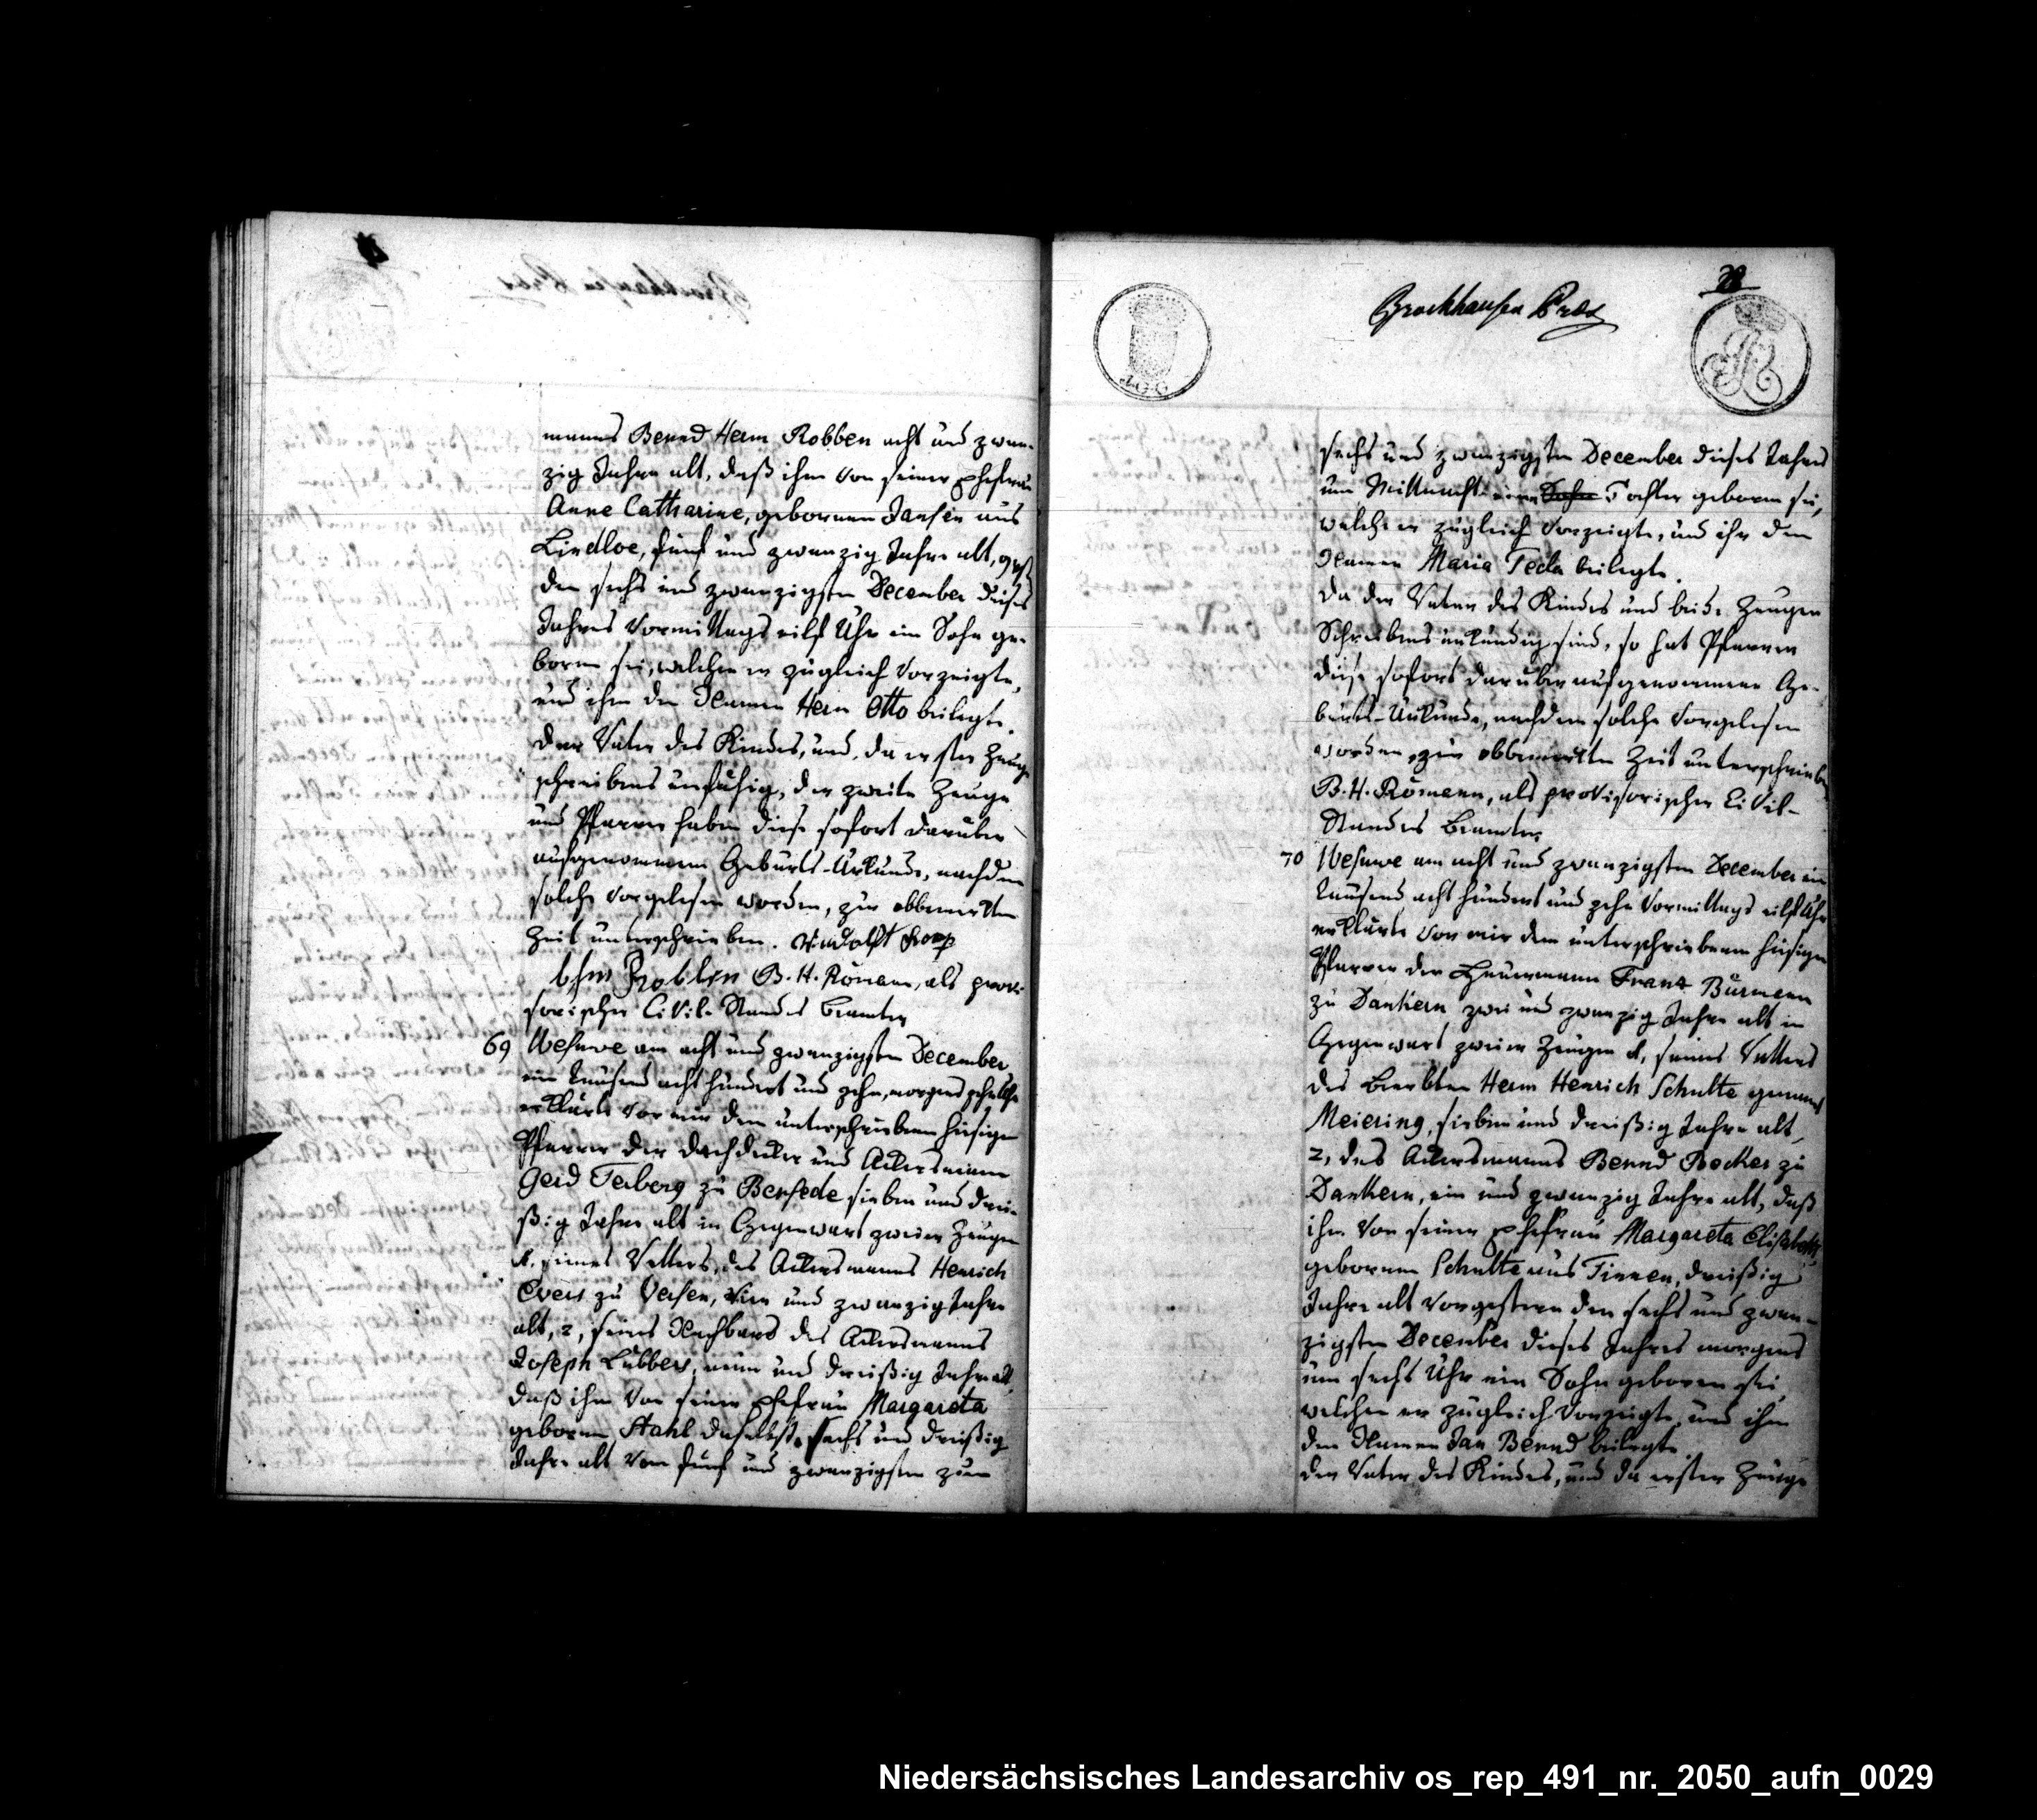 manns Bernd Herm Robben acht und zwan-
zig Jahre alt, daß ihm von seiner Ehefrau
Anne Catharine, gebornen Jansen aus
Lindloe, fünf und zwanzig Jahre alt,
den sechs und zwanzigsten December dieses
Jahres Vormittags eilf Uhr ein Sohn ge-
boren sei, welchen er zugleich vorzeigte,
und ihm den Namen Herm Otto beilegte.
Der Vater des Kindes, und, da erster Zeuge
schreibens unfähig, der zweite Zeuge
und Pfarrer haben diese sofort darüber
aufgenommene Geburts-Urkunde, nachdem
solche vorgelesen worden, zur obbemerkten
Zeit unterschrieben. Rudolff
Robben B. H. Römann, als provi-
sorischer Civil-Standes Beamter
69 Wesuwe am acht und zwanzigsten December
ein tausend acht hundert und zehn, morgens zehn Uhr
erklärte vor mir dem unterschriebenen hiesigen
Pfarrer der Dachdecker und Ackersmann
Gerd Terberg zu Bersede sieben und drei-
ßig Jahre alt in Gegenwart zweier Zeugen
1, seines Vetters, des Ackersmanns Henrich
Evers zu Versen, vier und zwanzig Jahre
alt, 2, seines Nachbars des Ackersmanns
Joseph Lübbers, neun und dreißig Jahre alt,
daß ihm von seiner Ehefrau Margareta
gebornen Stahl daselbst, sechs und dreißig
Jahre alt vom fünf und zwanzigsten zum
Brockhausen Präs
100
sechs und zwanzigsten December dieses Jahres
um Mitternacht eine Sohn Tochter geboren sei,
welche er zugleich vorzeigte, und ihr den
Namen Maria Tecla beilegte.
Da der Vater des Kindes und beide Zeugen
Schreibens unkundig sind, so hat Pfarrer
diese sofort darüber aufgenommene Ge-
burts-Urkunde, nachdem solche vorgelesen
worden, zur obbemerkten Zeit unterschrieben
B. H. Römann, als provisorischer Civil-
Standes Beamter
70 Wesuwe am acht und zwanzigsten December ein
tausend acht hundert und zehn Vormittags eilf Uhr
erklärte vor mir dem unterschriebenen hiesigen
Pfarrer der Heuermann Franz Bürmann
zu Dankern zwei und zwanzig Jahre alt in
Gegenwart zweier Zeugen 1, seines Vetters
des Beerbten Herm Henrich Schulte genannt
Meiering, sieben und dreißig Jahre alt,
2, des Ackersmanns Bernd Becker zu
Dankern, ein und zwanzig Jahre alt, daß
ihm von seiner Ehefrau Margareta Elisabeth
gebornen Schulte aus Tinnen, dreißig
Jahre alt vorgestern den sechs und zwan-
zigsten December dieses Jahres morgens
um sechs Uhr ein Sohn geboren sei,
welchen er zugleich vorzeigte, und ihm
den Namen Jan Bernd beilegte.
der Vater des Kindes, und da erster Zeuge
Niedersächsisches Landesarchiv os_rep_491_nr._2050_aufn_0029